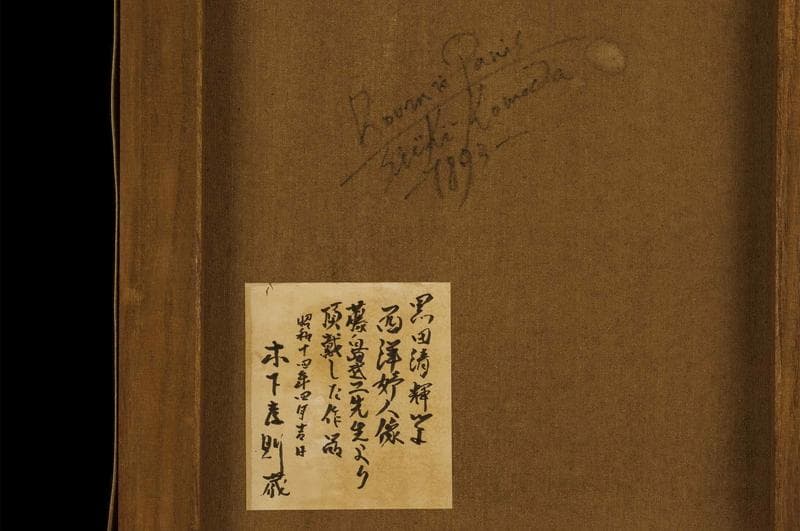 Paris
Seiki
1893
黒田清輝筆
西洋婦人像
藤島武二先生より
頂戴した作品
昭和十四年四月吉日
木下孝則蔵